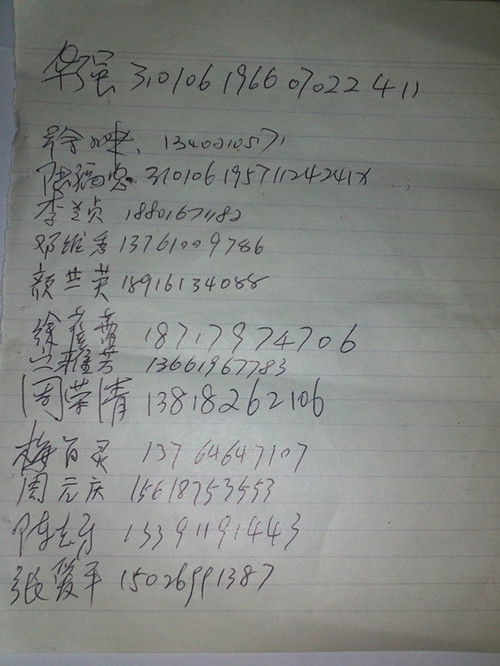 强 310106 1966 07022411
徐 13402010571
陆福忠 31010619571124241X
李兰贞 18801671182
邓维秀 13761009786
颜兰英 18916134088
徐 18717974706
芳 13661967783
周荣清 13818262106
梅百灵 13764647107
周元庆 15618753553
陈 13391191443
张爱平 15026991387